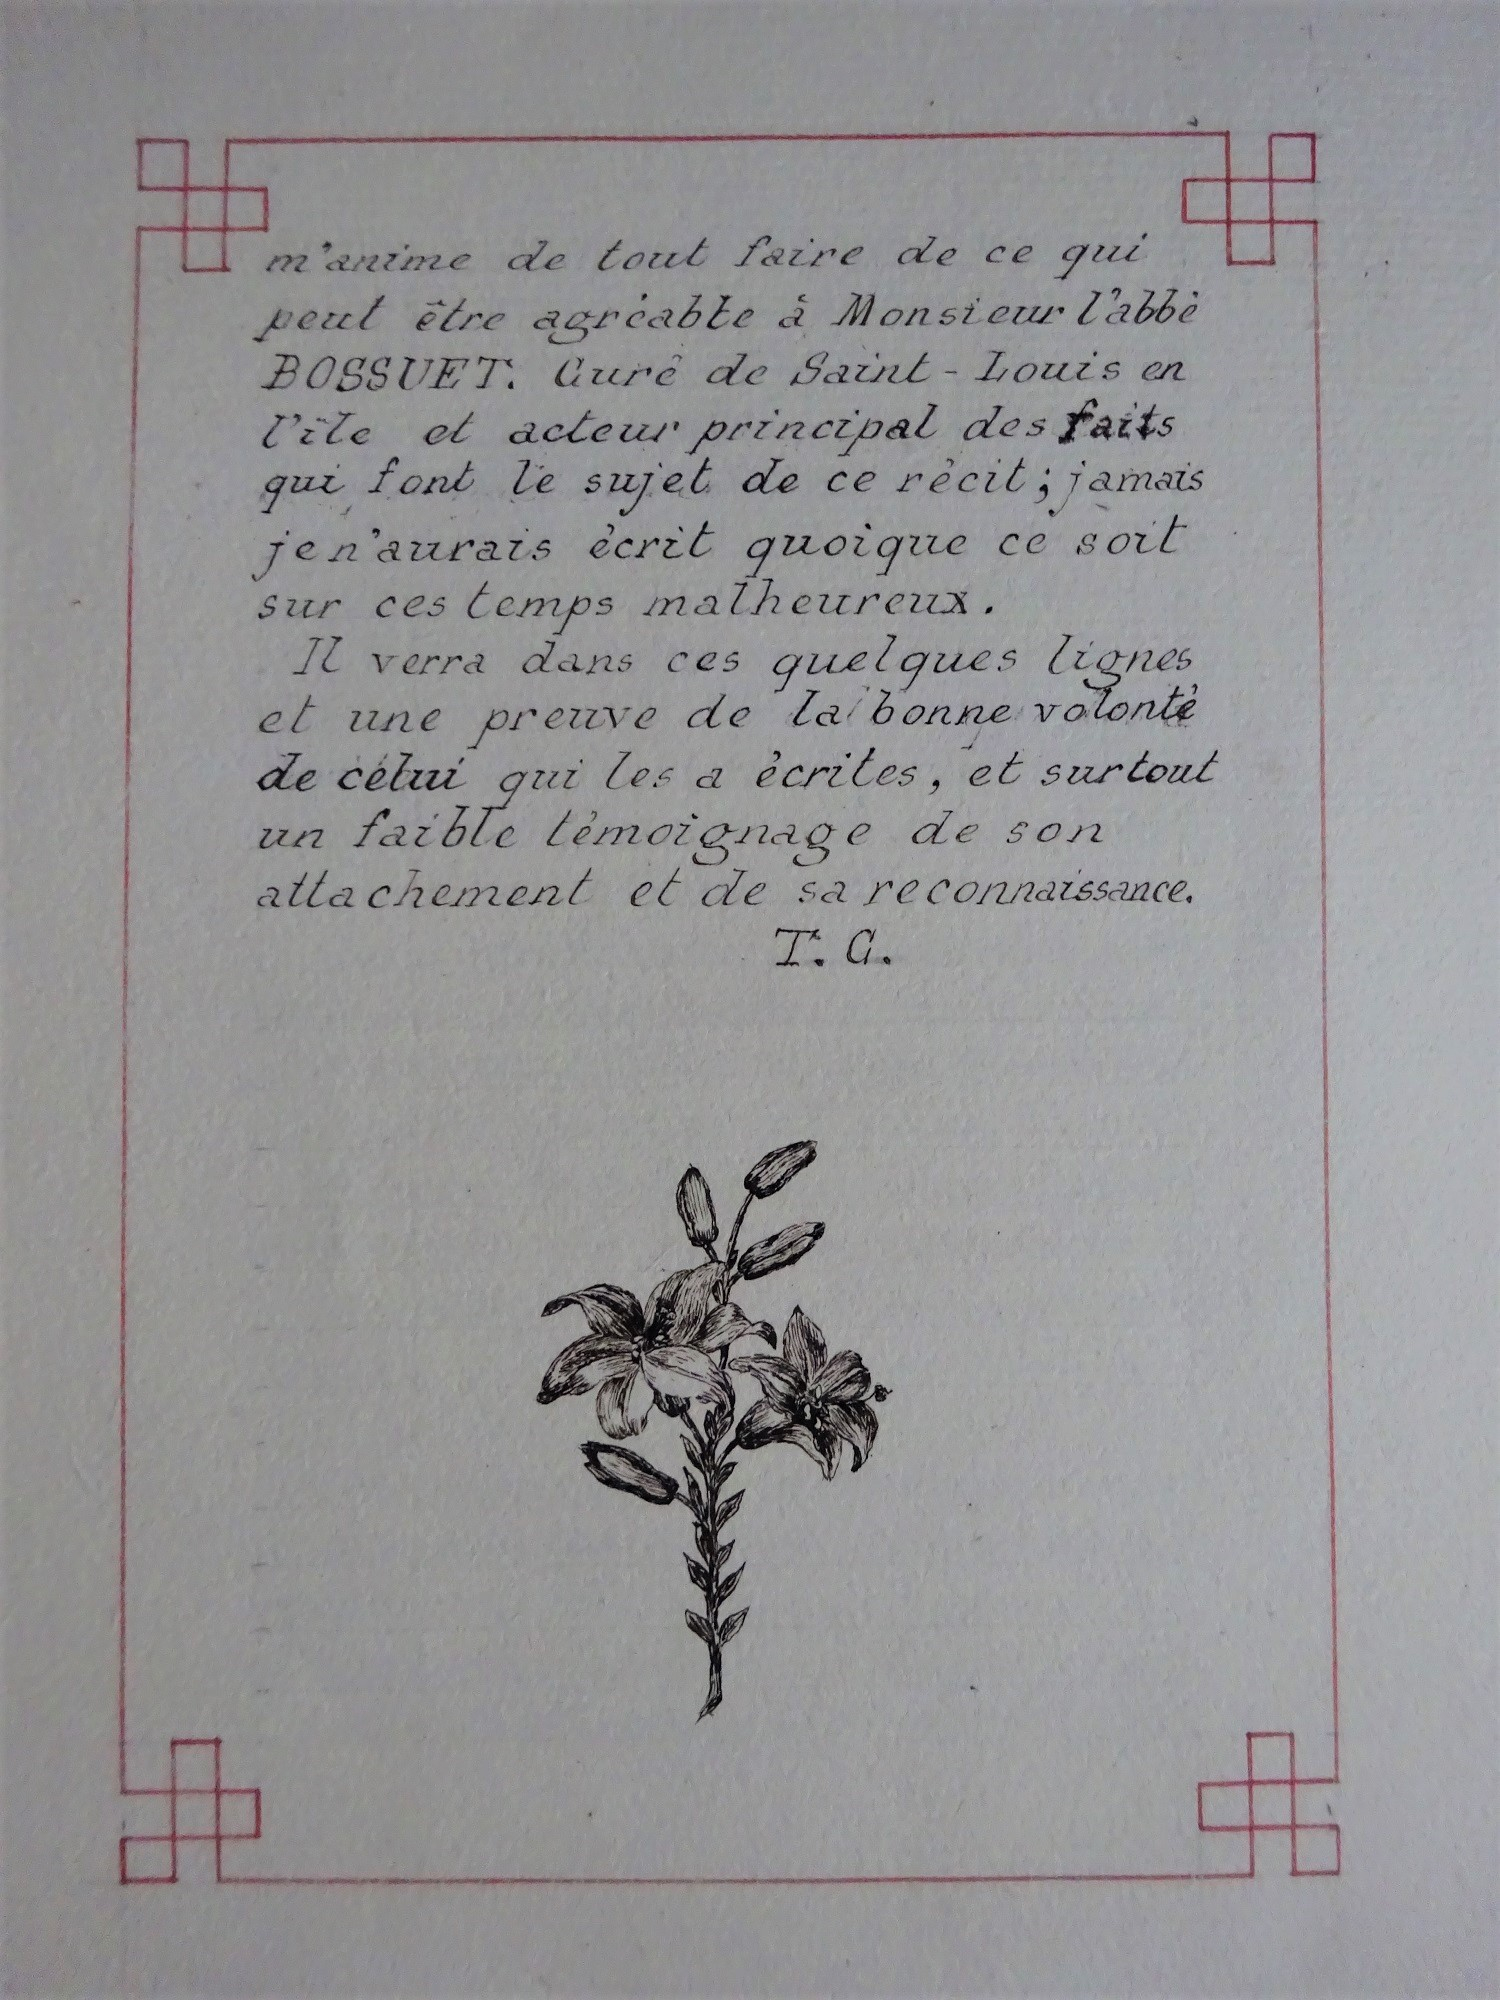 m'anime de tout faire de ce qui
peut être agréable à Monsieur l'abbé
BOSSUET. Curé de Saint-Louis en
l'île et acteur principal des faits
qui font le sujet de ce récit; jamais
je n'aurais écrit quoique ce soit
sur ces temps malheureux.
Il verra dans ces quelques lignes
et une preuve de la bonne volonté
de celui qui les a écrites, et surtout
un faible témoignage de son
attachement et de sa reconnaissance.
T. G.